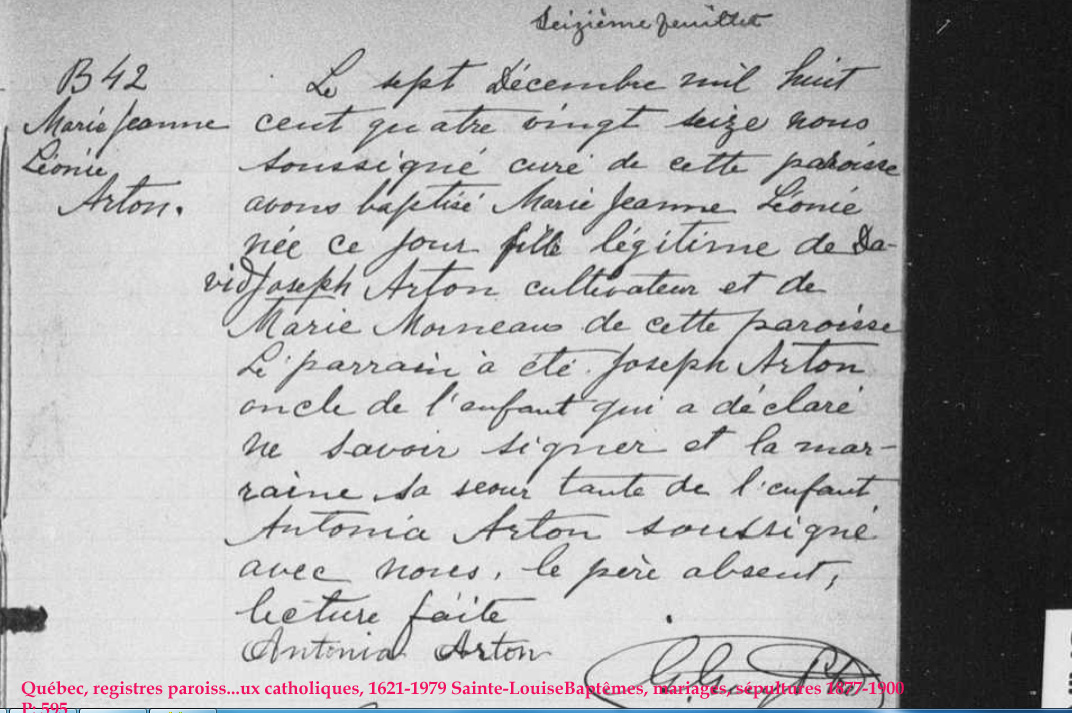 Seizième feuillet
B 42
Marie Jeanne
Léonie
Arton.
Le sept Décembre mil huit
cent quatre vingt seize nous
soussigné curé de cette paroisse
avons baptisé Marie Jeanne Léonie
née ce jour fille légitime de Da-
vid Joseph Arton cultivateur et de
Marie Morneau de cette paroisse
Le parrain à été Joseph Arton
oncle de l'enfant qui a déclaré
ne savoir signer et la mar-
raine sa seour tante de l'enfant
Antonia Arton soussigné
avec nous, le père absent,
lecture faite
Antonia Arton
Québec, registres paroiss...ux catholiques, 1621-1979 Sainte-LouiseBaptêmes, mariages, sépultures 1877-1900
P: 595